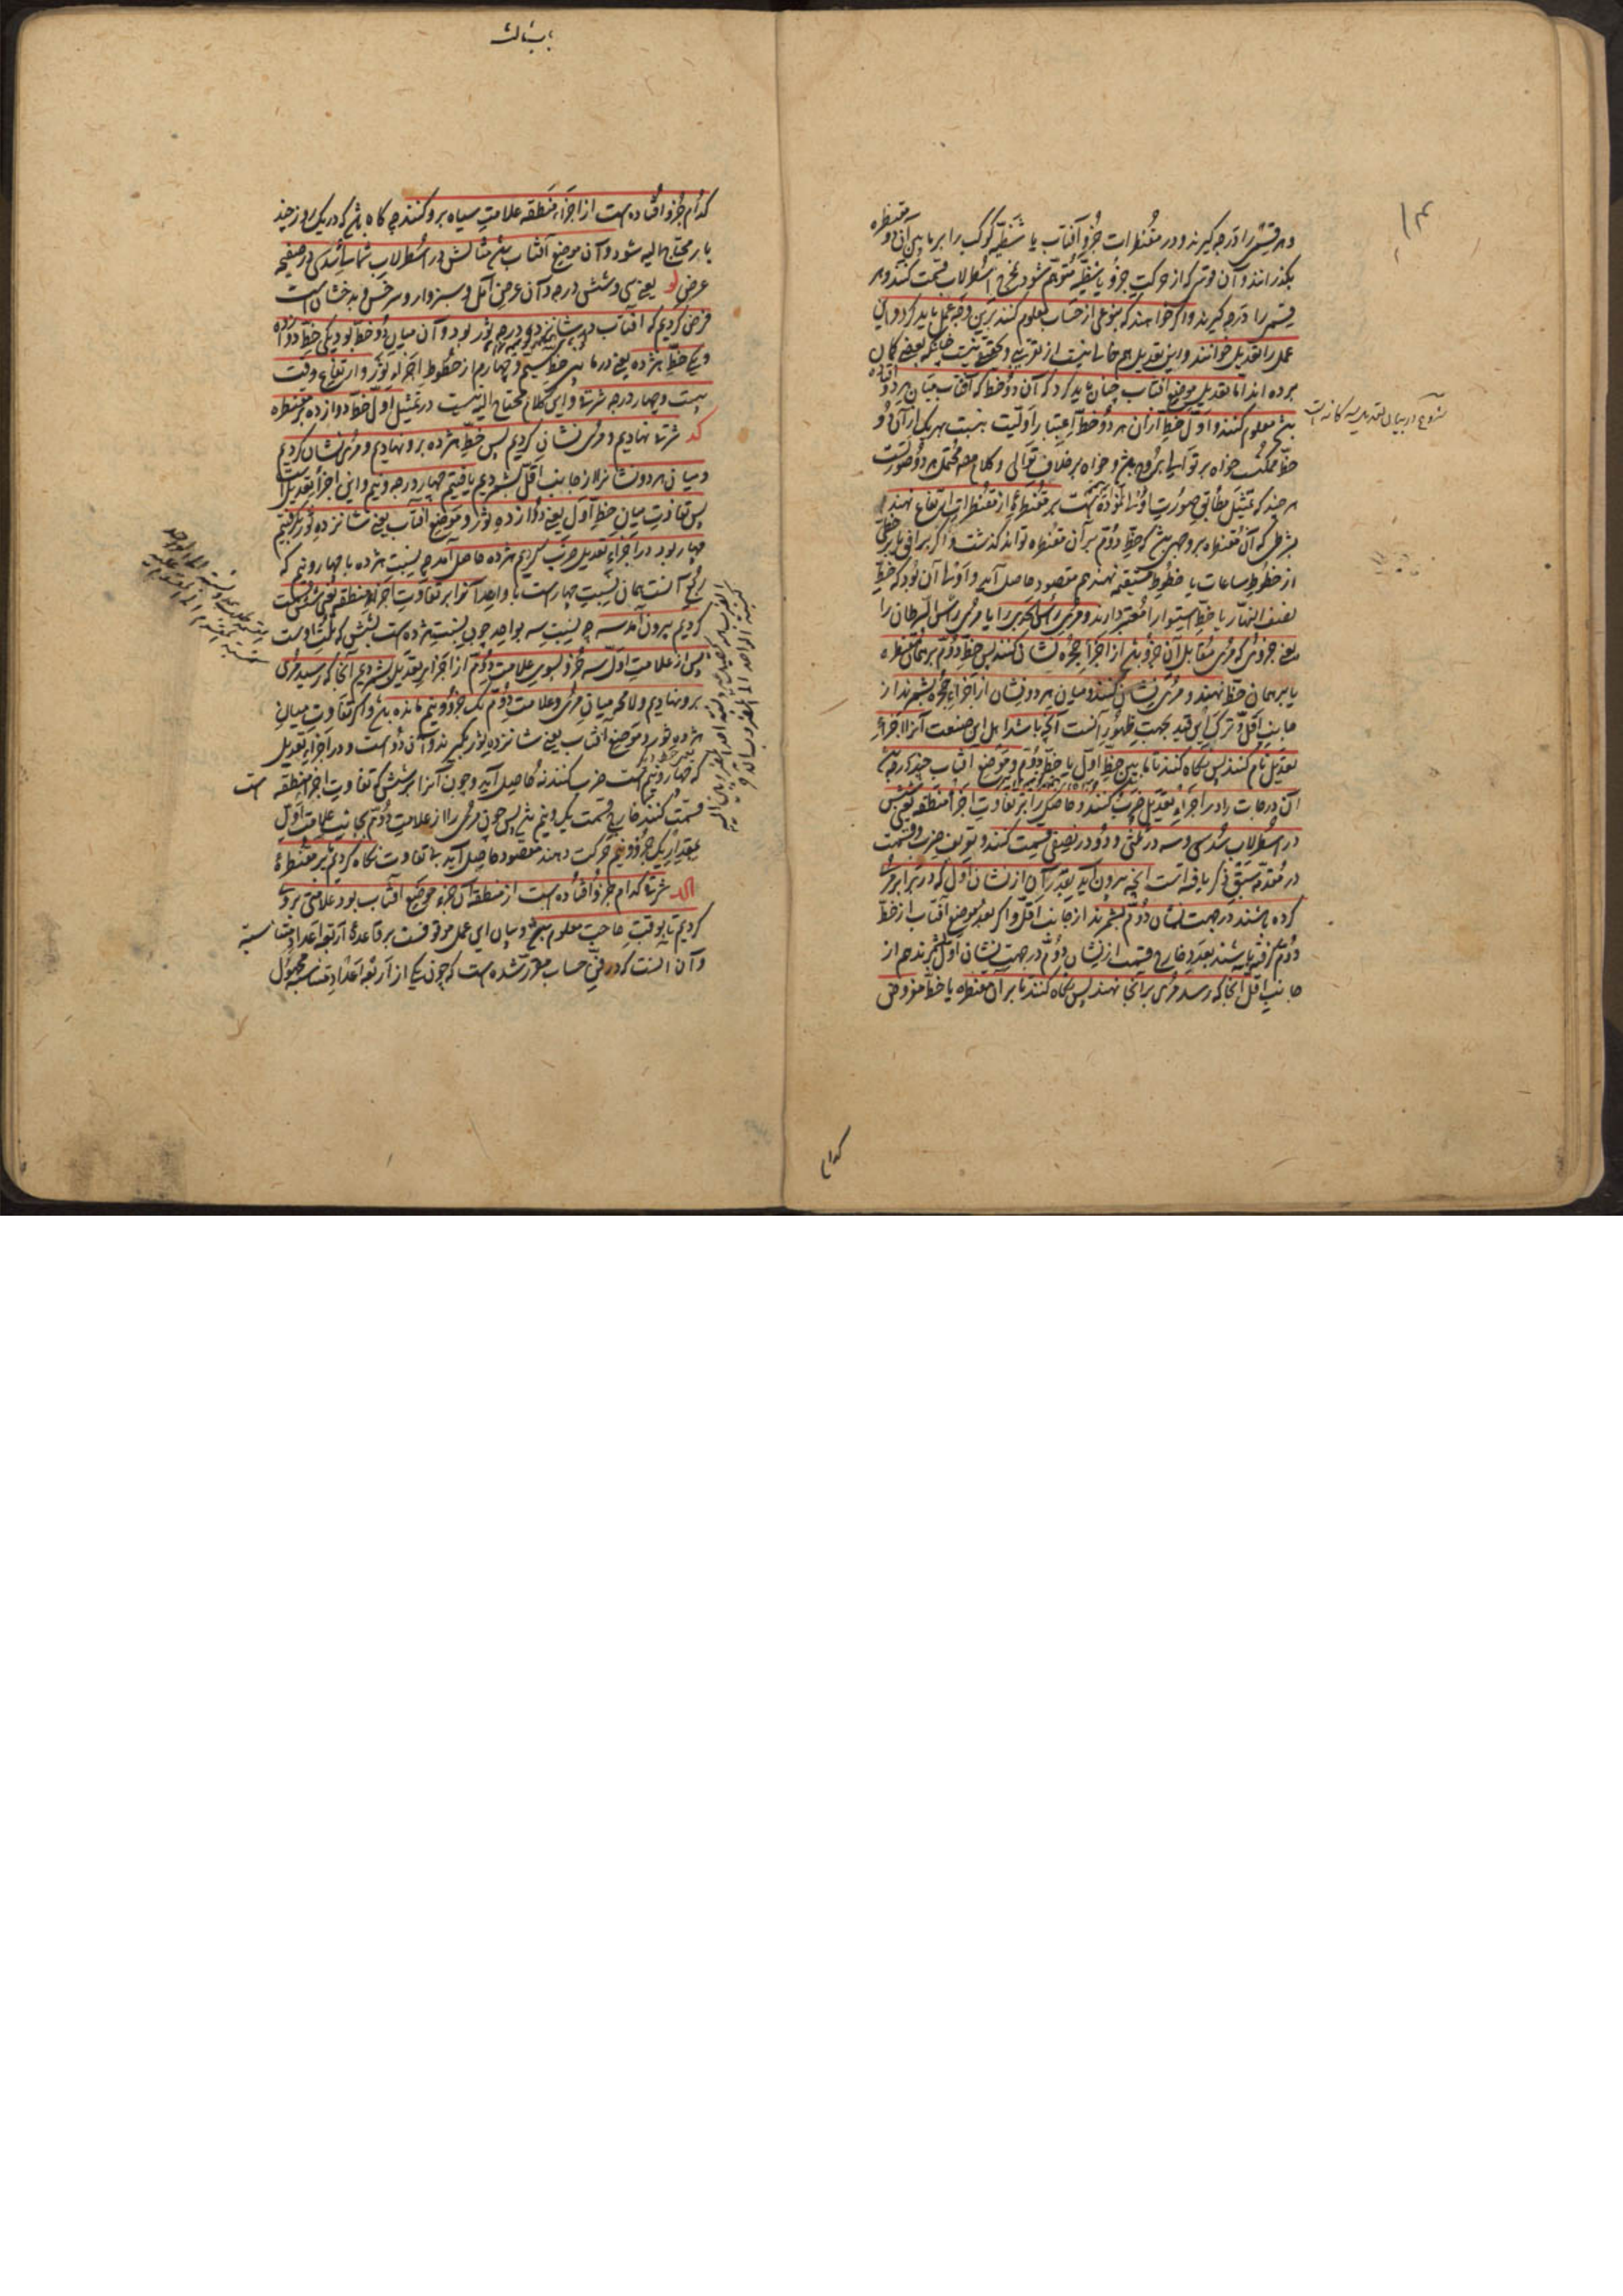 ۱۴
و هر قسمی را درجه گیرند و در مقنطرات جزو آفتاب یا شظیه کوکب را بر مابین آن دو مقنطره
بگذرانند و آن قوس که از حرکت جزو یا شظیه متوهم شود بمخرج اسطرلاب قسمت کنند و هر
قسم را درجه گیرند و اگر خواهند که بنوعی از حساب معلوم کنند برین وجه عمل باید کرد و این
عمل را تعدیل خوانند و این تعدیل هم خالی نیست از تقریبی و تحقیق نیست چنانکه بعضی گمان
برده اند اما تعدیل موضع آفتاب چنان باید کرد که آن دو خط که آفتاب میان هر دو افتاده
باشد معلوم کنند و اول خط از آن هر دو خط باعتبار اولیت بنسبت بهر یک از آن دو
خط ممکنست خواه بر توالی بروج باشد و خواه بر خلاف توالی و کلام مص محتمل هر دو صورتست
هر چند که تمثیل مطابق صورت اولی است بر مقنطره از مقنطرات ارتفاع نهند
بشرطی که آن مقنطره بر وجهی باشد که خط دوم بر آن مقنطره تواند گذشت و اگر بر افق یا بر خطی
از خطوط ساعات یا خطوط مستقیمه نهند هم مقصود حاصل آید و اولی آن بود که خط
نصف النهار یا خط استوا را معتبر دارند و مری رأس الجدی را یا مری رأس السرطان را
یعنی جزوی که مری مقابل آن جزو باشد از اجزاء حجره نشان کنند پس خط دوم بر همان مقنطره
یا بر همان خط نهند و مری نشان کنند و میان هر دو نشان از اجزاء حجره بشمرند از
جانب اقل و ترک این قید بجهت ظهور آنست آنچه باشد اهل این صنعت آنرا اجزاء
تعدیل نام کنند پس نگاه کنند تا مابین خط اول یا خط دوم و موضع آفتاب چند درجه باشد
آن درجات را در اجزاء تعدیل ضرب کنند و حاصل را بر تفاوت اجزاء منطقه یعنی شش
در اسطرلاب سدسی و سه در ثلثی و دو در نصفی قسمت کنند و تعریف ضرب و قسمت
در مقدمه سبق ذکر یافته است آنچه بیرون آید بقدر آن از نشان اول که در برابر مری
کرده باشند در جهت نشان دوم بشمرند از جانب اقل و اگر بعد موضع آفتاب از خط
دوم گرفته باشند بعدد خارج قسمت از نشان دوم در جهت نشان اول بشمرند هم از
جانب اقل آنجا که رسد مری بر آنجا نهند پس نگاه کنند تا بر آن مقنطره یا خط مفروض
کدام
کدام جزو افتاده است از اجزاء منطقه علامت سیاه برو کنند چه گاه باشد که در یک روز چند
بار محتاج الیه شود و آن موضع آفتاب باشد مثالش در اسطرلاب شمالی سدسی در صفیحه
عرض لو یعنی سی و شش درجه و آن عرض آمل و سبزوار و سرخس و بدخشان است
فرض کردیم که آفتاب در شانزده درجه ثور بود و آن میان دو خط بود یکی خط دوازده
و یکی خط هژده یعنی درمابین خط سیم و چهارم از خطوط اجزاء ثور و ارتفاع وقت
بیست و چهار درجه شرقی و این کلام محتاج الیه نیست در تمثیل اول خط دوازده بر مقنطره
کد شرقی نهادیم و مری نشان کردیم پس خط هژده برو نهادیم و مری نشان کردیم
و میان هر دو نشان را از جانب اقل بشمردیم یافتیم چهار درجه و نیم و این اجزاء تعدیل است
پس تفاوت میان خط اول یعنی دوازده ثور و موضع آفتاب یعنی شانزده ثور گرفتیم
چهار بود در اجزاء تعدیل ضرب کردیم هژده حاصل آمد چه نسبت هژده با چهار و نیم که
ربع آنست همان نسبت چهار است با واحد آنرا بر تفاوت اجزاء منطقه یعنی شش قسمت
کردیم بیرون آمد سه چه نسبت سه بواحد چون نسبت هژده است بشش که ثلث اوست
پس از علامت اول سه جزو بسوی علامت دوم از اجزاء تعدیل بشمردیم آنجا که رسید مری
برو نهادیم و لامحه میان مری و علامت دوم یک جزو و نیم مانده باشد و اگر تفاوت میان
هژده ثور و موضع آفتاب یعنی شانزده ثور بگیرند و آن دو است و در اجزاء تعدیل
که چهار و نیم است ضرب کنند نه حاصل آید و چون آنرا بر شش که تفاوت اجزاء منطقه است
قسمت کنند خارج قسمت یک و نیم باشد پس چون مری را از علامت دوم بجانب علامت اول
بمقدار یک جزو و نیم حرکت دهند مقصود حاصل آید بی تفاوت نگاه کردیم تا بر مقنطره
الکد شرقی کدام جزو افتاده است از منطقه آن جزء موضع آفتاب بود علامتی بر وی
کردیم تا بوقت حاجت معلوم باشد و بیان این عمل موقوفست بر قاعده اربعه اعداد متناسبه
و آن آنست که در فن حساب مقرر شده است که چون یکی از اربعه اعداد متناسبه مجهول